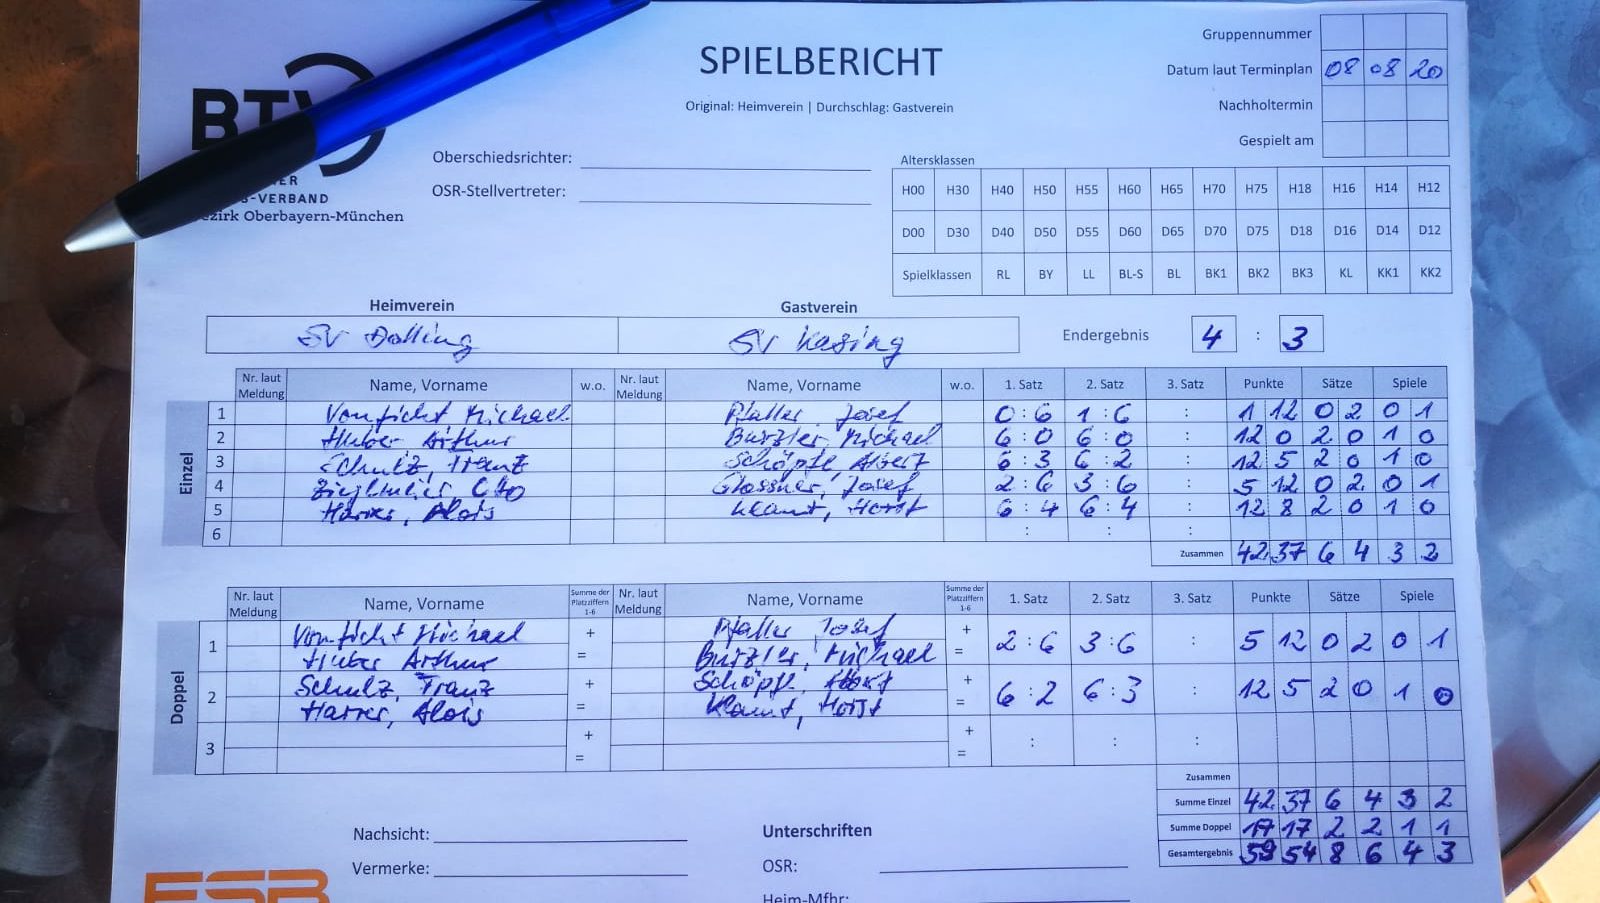 SPIELBERICHT
Original: Heimverein | Durchschlag: Gastverein
Gruppennummer
Datum laut Terminplan 08 08 20
Nachholtermin
Gespielt am
BTV
S-VERBAND
ezirk Oberbayern-München
Oberschiedsrichter:
OSR-Stellvertreter:
Altersklassen
H00 H30 H40 H50 H55 H60 H65 H70 H75 H18 H16 H14 H12
D00 D30 D40 D50 D55 D60 D65 D70 D75 D18 D16 D14 D12
Spielklassen RL BY LL BL-S BL BK1 BK2 BK3 KL KK1 KK2
Heimverein Gastverein
SV Dolling SV Kasing Endergebnis 4 : 3
Einzel
Nr. laut Meldung Name, Vorname w.o. Nr. laut Meldung Name, Vorname w.o. 1. Satz 2. Satz 3. Satz Punkte Sätze Spiele
1 Vonficht Michael Pfaller Josef 0:6 1:6 : 1 12 0 2 0 1
2 Huber Arthur Burzler, Michael 6:0 6:0 : 12 0 2 0 1 0
3 Schulz, Franz Schöpfl, Albert 6:3 6:2 : 12 5 2 0 1 0
4 Otto Glossner, Josef 2:6 3:6 : 5 12 0 2 0 1
5 Harrer, Alois Klamt, Horst 6:4 6:4 : 12 8 2 0 1 0
6 : : :
Zusammen 42 37 6 4 3 2
Doppel
Nr. laut Meldung Name, Vorname Summe der Platzziffern 1-6 Nr. laut Meldung Name, Vorname Summe der Platzziffern 1-6 1. Satz 2. Satz 3. Satz Punkte Sätze Spiele
Vonficht Michael + Pfaller Josef +
1 2:6 3:6 : 5 12 0 2 0 1
Huber Arthur = Burzler, Michael =
Schulz, Franz + Schöpfl, +
2 6:2 6:3 : 12 5 2 0 1 0
Harrer, Alois = Klamt, Horst =
+ +
3 : : :
= =
Zusammen
Summe Einzel 42 37 6 4 3 2
Summe Doppel 17 17 2 2 1 1
Gesamtergebnis 59 54 8 6 4 3
Nachsicht:
Vermerke:
Unterschriften
OSR:
Heim-Mfhr:
FSB